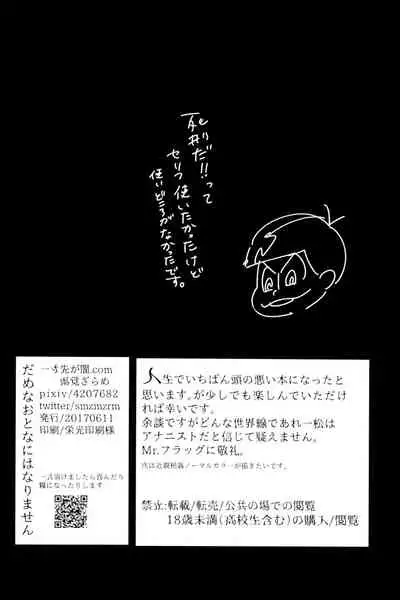 死刑だ!!って
セリフ使いたかったけど
使いどころがなかったです。
だめなおとなにはなりません
一寸先が闇.com
幻覚ざらめ
pixiv/4207682
twitter/smzmzrm
発行/20170611
印刷/栄光印刷様
人生でいちばん頭の悪い本になったと
思います。が少しでも楽しんでいただけ
れば幸いです。
余談ですがどんな世界線であれ一松は
アナニストだと信じて疑えません。
Mr.フラッグに敬礼。
禁止:転載/転売/公共の場での閲覧
18歳未満(高校生含む)の購入/閲覧